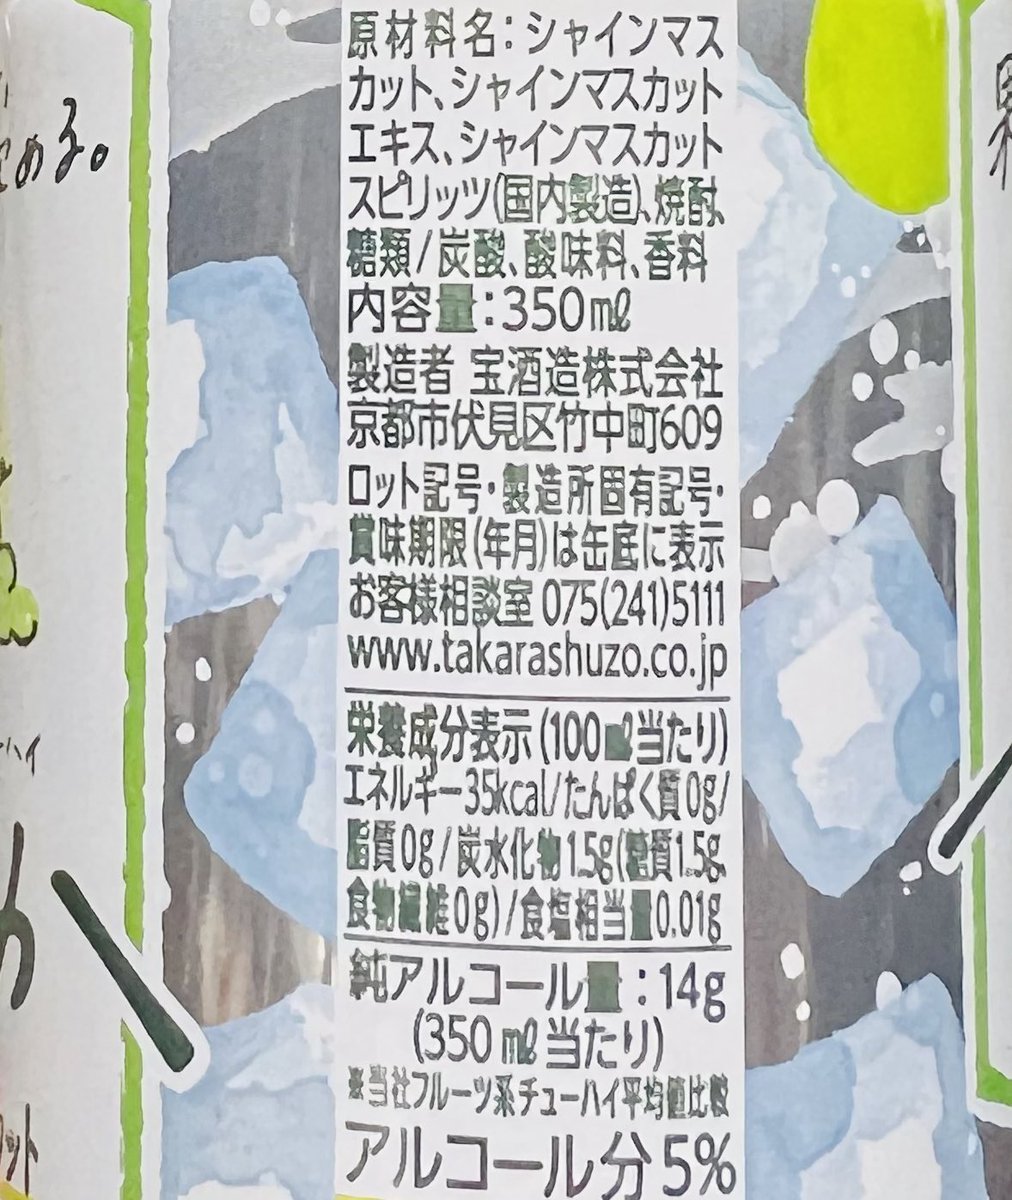 原材料名:シャインマス
カット、シャインマスカット
エキス、シャインマスカット
スピリッツ(国内製造)、焼酎、
糖類/炭酸、酸味料、香料
内容量:350㎖
製造者 宝酒造株式会社
京都市伏見区竹中町609
ロット記号・製造所固有記号・
賞味期限(年月)は缶底に表示
お客様相談室 075(241)5111
www.takarashuzo.co.jp
栄養成分表示(100㎖当たり)
エネルギー35kcal/たんぱく質0g/
脂質0g/炭水化物1.5g(糖質1.5g、
食物繊維0g)/食塩相当量0.01g
純アルコール量:14g
(350㎖当たり)
※当社フルーツ系チューハイ平均値比較
アルコール分5%
める。
ハイ
ット